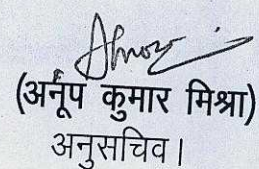 (अनूप कुमार मिश्रा)
अनुसचिव।